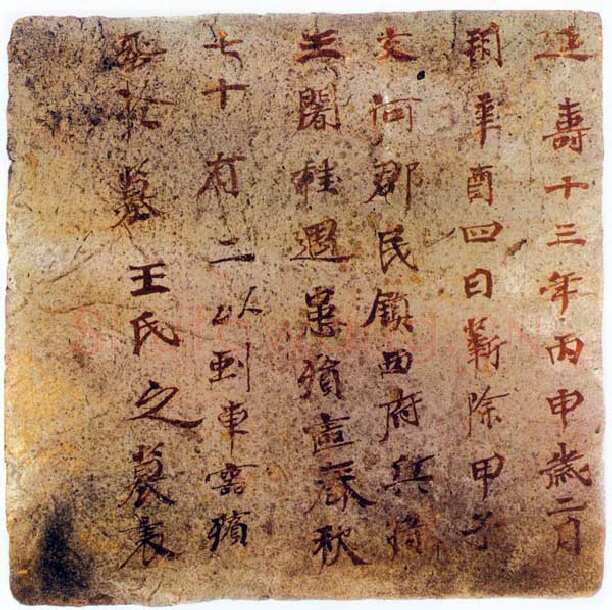 延壽十三年丙申歲二月
朔辛酉四日新除甲子
交河郡民鎮西府兵將
王闍桂遇患殞喪春秋
七十有二以到車靈殯
於墓王氏之墓表